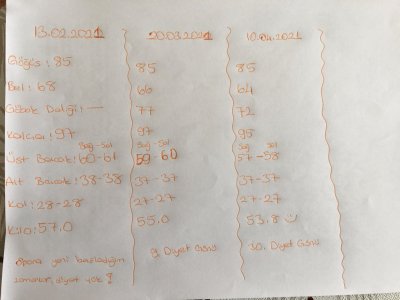 13.02.2021 20.03.2021 10.04.2021
Göğüs: 85 85 85
Bel: 68 66 64
Göbek Deliği: — 77 72
Kalça: 97 97 95
Sağ-Sol Sağ-Sol Sağ-Sol
Üst Bacak: 60-61 59 60 57-58
Alt Bacak: 38-38 37-37 37-37
Kol: 28-28 27-27 27-27
Kilo: 57.0 55.0 53.8
Spora yeni başladığım 9. Diyet Günü 30. Diyet Günü
zamanlar, diyet yok